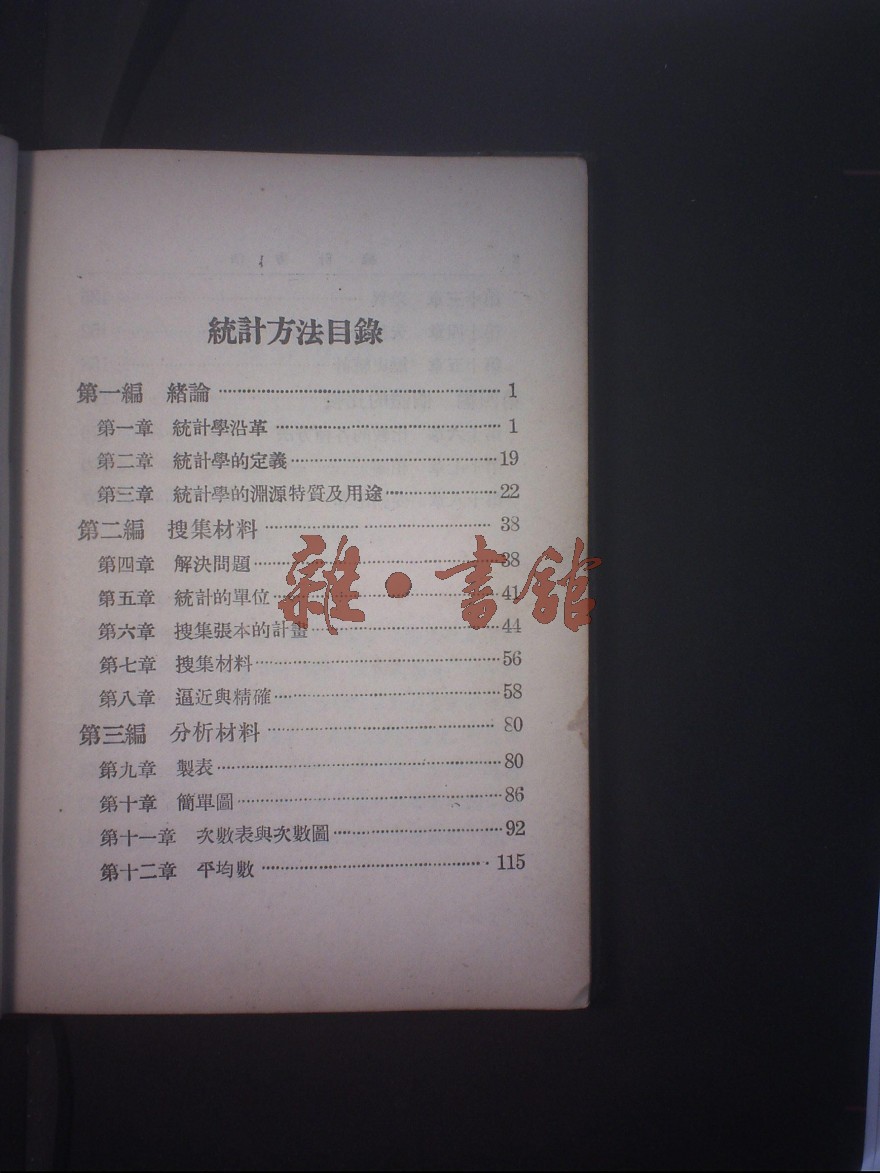 統計方法目錄
第一編 緒論 1
第一章 統計學沿革 1
第二章 統計學的定義 19
第三章 統計學的淵源特質及用途 22
第二編 搜集材料 38
第四章 解決問題 38
第五章 統計的單位 41
第六章 搜集張本的計畫 44
第七章 搜集材料 56
第八章 逼近與精確 58
第三編 分析材料 80
第九章 製表 80
第十章 簡單圖 86
第十一章 次數表與次數圖 92
第十二章 平均數 115
雜·書館